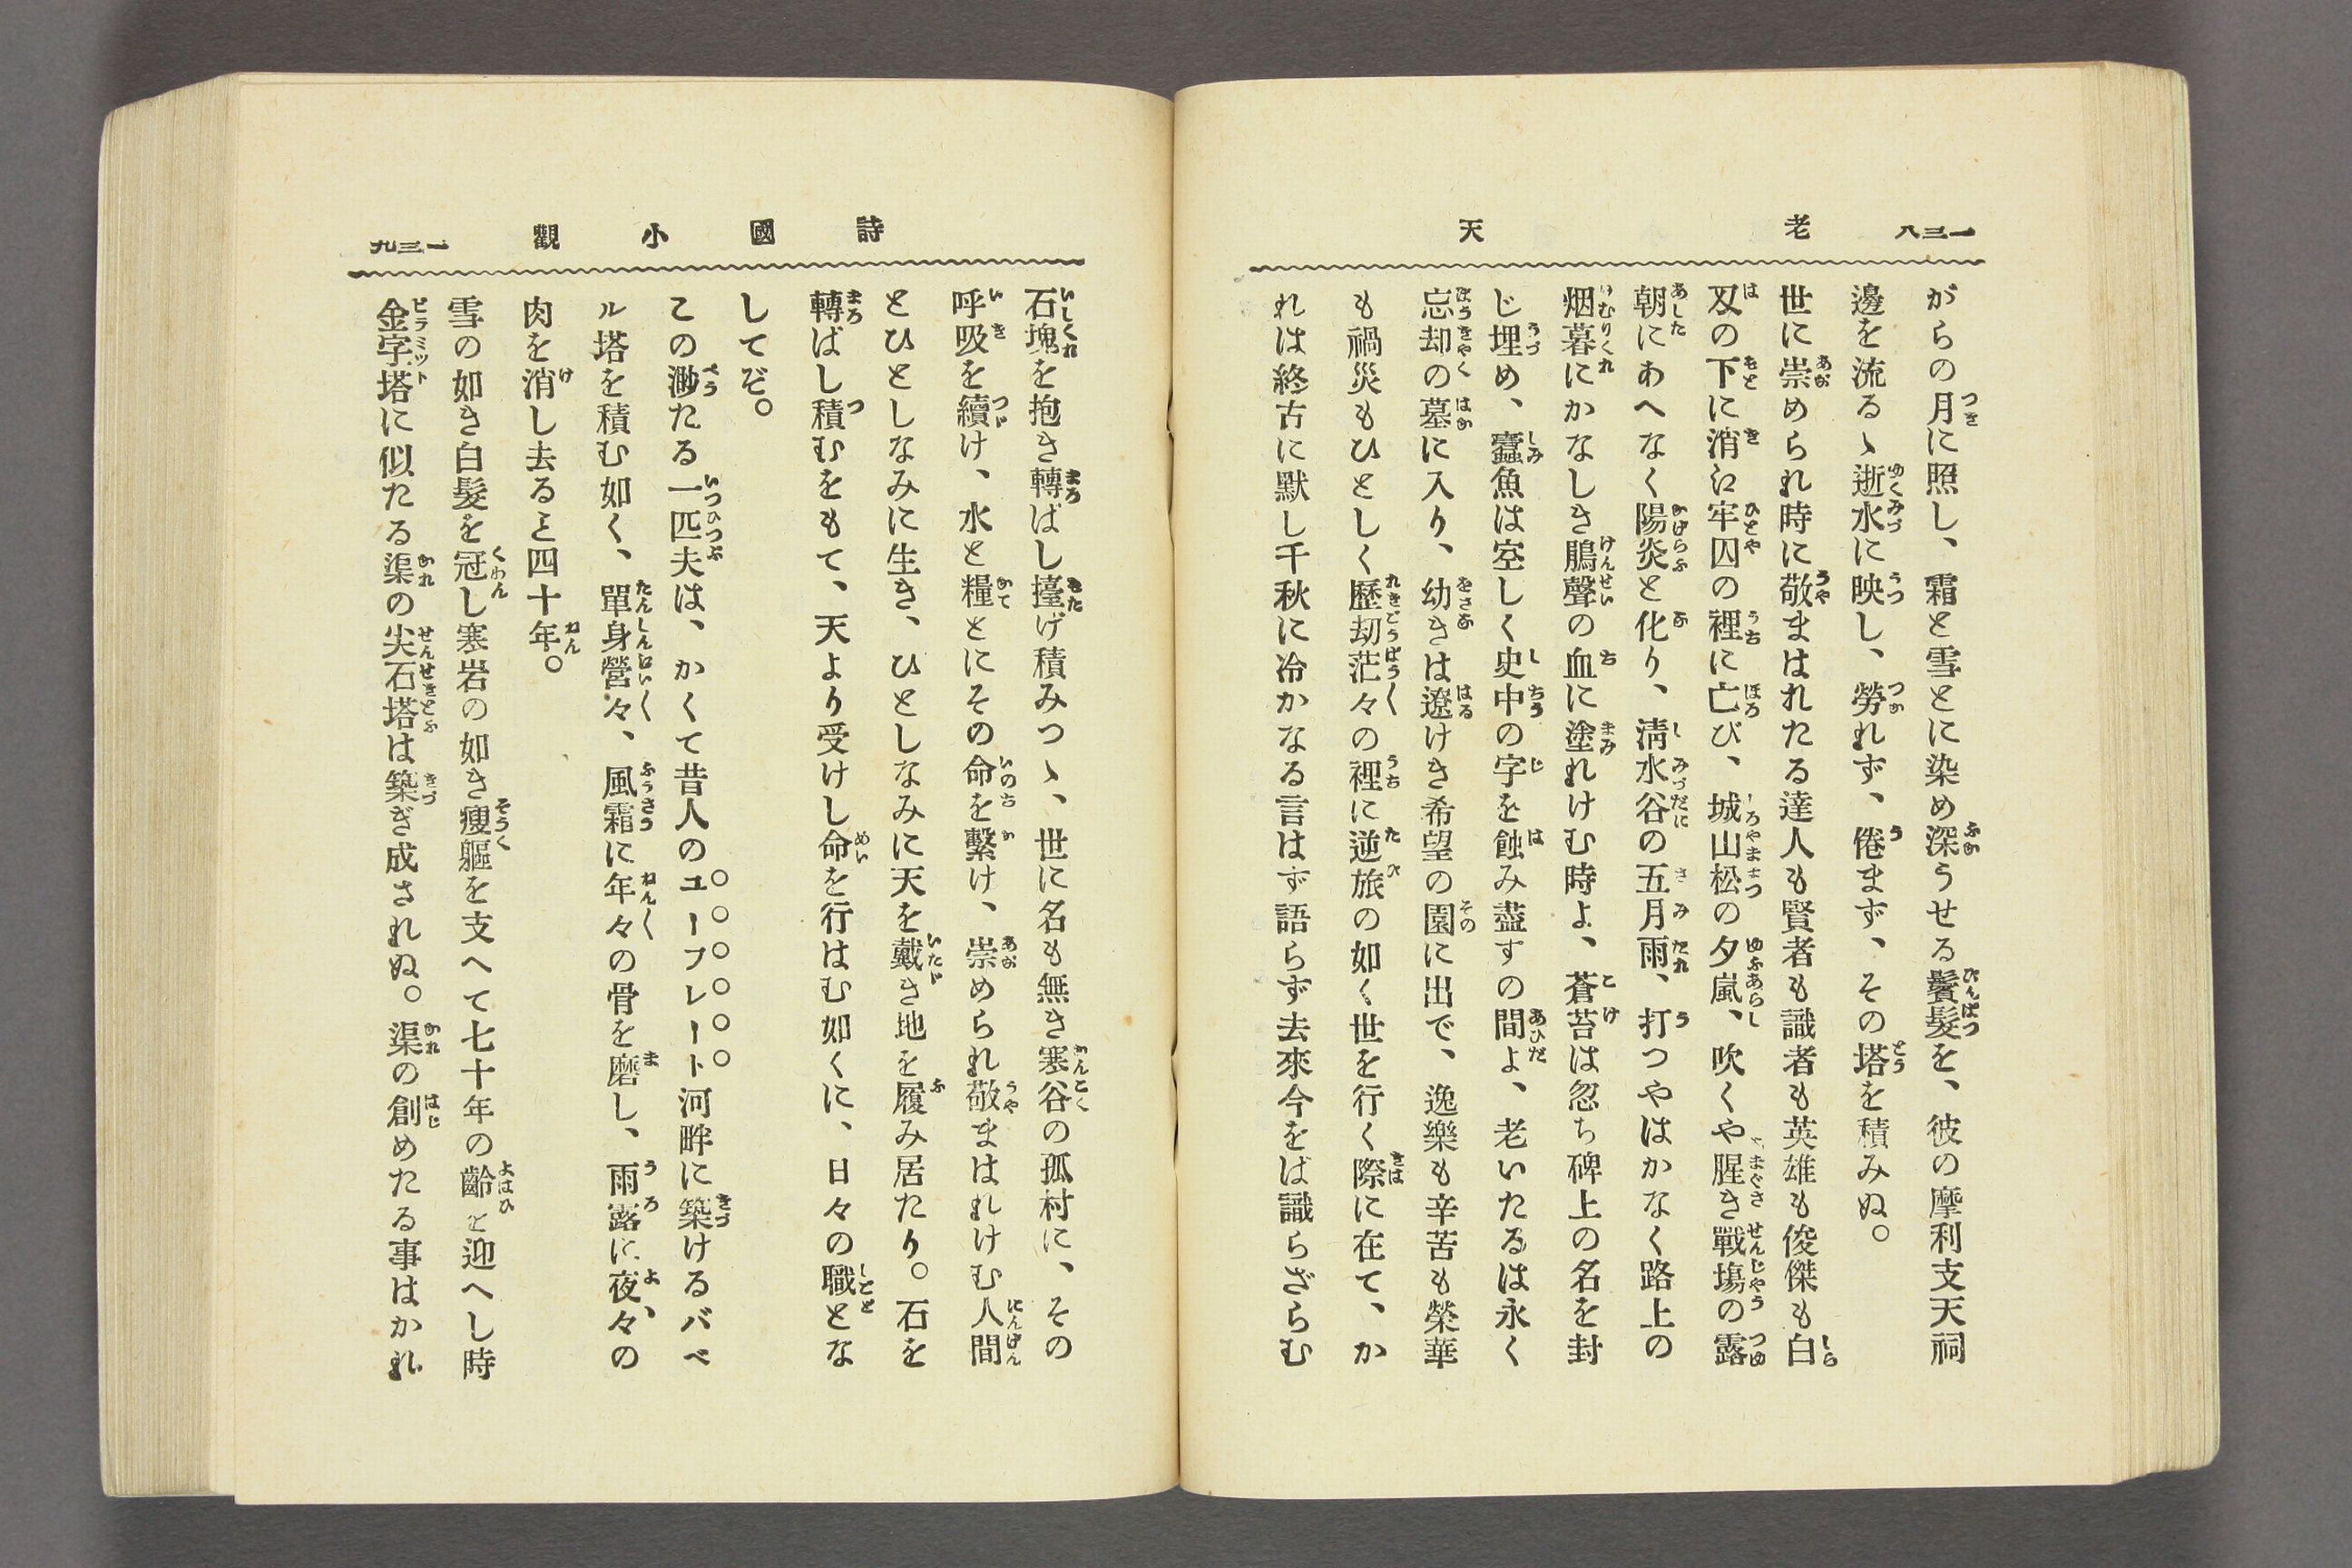 一三八
老天
がらの月に照し、霜と雪とに染め深うせる鬢髮を、彼の摩利支天祠
邊を流るゝ逝水に映し、勞れず、倦まず、その塔を積みぬ。
世に崇められ時に敬まはれたる達人も賢者も識者も英雄も俊傑も白
刄の下に消江牢囚の裡に亡び、城山松の夕嵐、吹くや腥き戰塲の露
朝にあへなく陽炎と化り、淸水谷の五月雨、打つやはかなく路上の
烟暮にかなしき鵑聲の血に塗れけむ時よ、蒼苔は忽ち碑上の名を封
じ埋め、蠹魚は空しく史中の字を蝕み盡すの間よ、老いたるは永く
忘却の墓に入り、幼きは遼けき希望の園に出で、逸樂も辛苦も榮華
も禍災もひとしく歷劫茫々の裡に逆旅の如く世を行く際に在て、か
れは終古に默し千秋に冷かなる言はず語らず去來今をば識らざらむ
詩國小觀
一三九
石塊を抱き轉ばし擡げ積みつゝ、世に名も無き寒谷の孤村に、その
呼吸を續け、水と糧とにその命を繫け、崇められ敬まはれけむ人間
とひとしなみに生き、ひとしなみに天を戴き地を履み居たり。石を
轉ばし積むをもて、天より受けし命を行はむ如くに、日々の職とな
してぞ。
この渺たる一匹夫は、かくて昔人のユーフレート河畔に築けるバベ
ル塔を積む如く、單身營々、風霜に年々の骨を磨し、雨露に夜々の
肉を消し去るこ四十年。
雪の如き白髮を冠し寒岩の如き瘦軀を支へて七十年の齡を迎へし時
金字塔に似たる渠の尖石塔は築ぎ成されぬ。渠の創めたる事はかれ